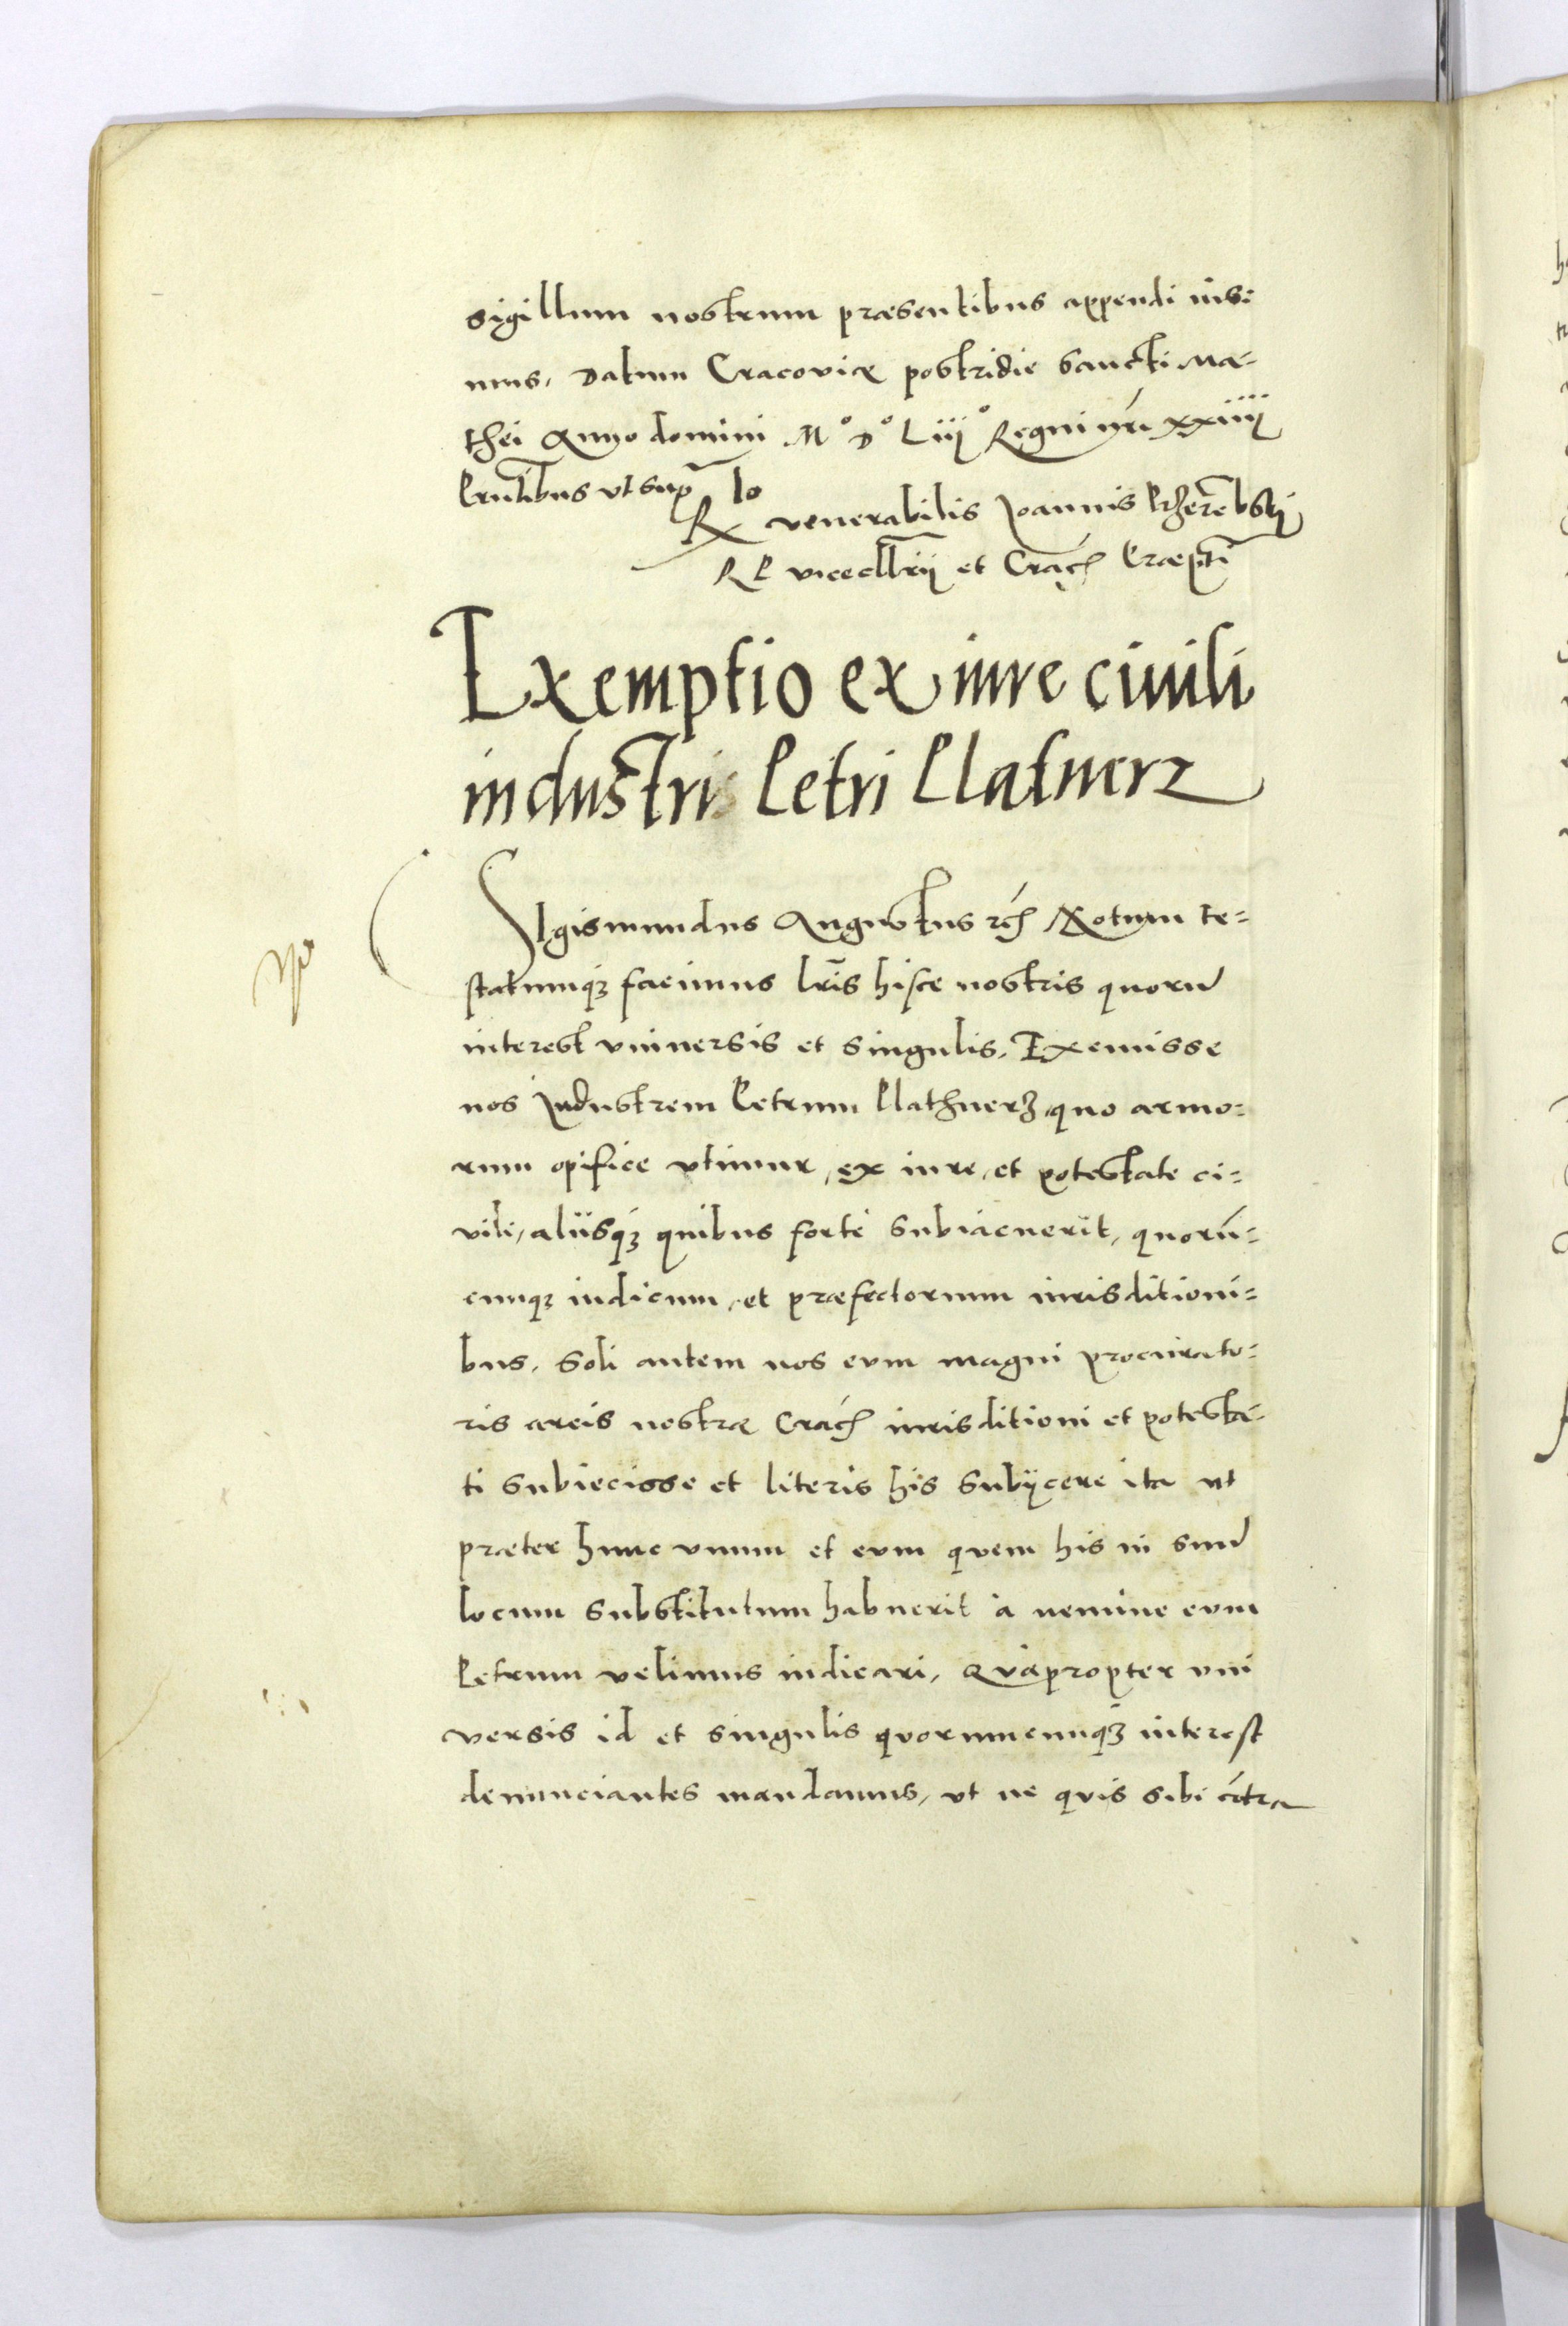 sigillum nostrum præsentibus appendi iussi
mus, Datum Cracoviæ postridie Sancti Ma-
thei Anno domini M° D° Liij° Regni nri xxiiij
Prntibus ut sup Io
Rx venerabilis Joannis Przerebski
R P vicecllrij et Crach Præpti
Exemptio ex iure ciuili
industris Petri Platnerz
SIgismundus Augustus rch Notum te-
statumq; facimus lris hisce nostris quorum
interest vniuersis et singulis. Exemisse
nos Industrem Petrum Plathnerz, quo armo-
rum opifice vtimur, ex iure, et potestate ci-
vili, aliisq; quibus forte subiacuerit, quorú-
cunq; iudicum, et præfectorum iurisditioni-
bus. Soli autem nos eum magni procurato-
ris arcis nostræ Crach iurisditioni et potesta-
ti subiecisse et literis his subijcere ita ut
præter hunc vnum et eum quem his in suum
locum substitutum habuerit à nemine eum
Petrum velimus iudicari, Quapropter vni
versis id et singulis quorumcunq; interest
denunciantes mandamus, vt ne quis sibi cótra